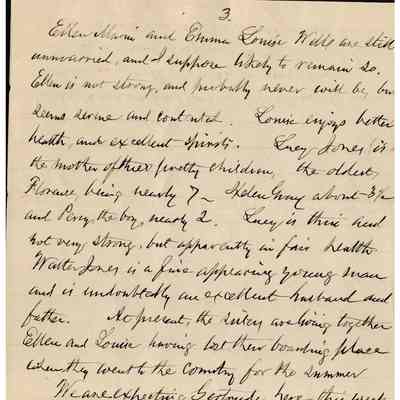 3.
Ellen Maria and Emma Louise Wells are still
unmarried, and I suppose likely to remain so.
Ellen is not strong, and probably never will be, but
seems serene and contented. Louise enjoys better
health, and excellent spirits. Lucy Jones is
the mother of three pretty children, the oldest
Florence being nearly 7 - Helen Gray about 3½
and Percy, the boy, nearly 2. Lucy is thin and
not very strong, but apparently in fair health
Walter Jones is a fine appearing young man
and is undoubtedly an excellent husband and
father. At present, the sisters are living together
Ellen and Louise having let their boarding place
when they went to the Country for the summer
We are expecting Gertrude here this week